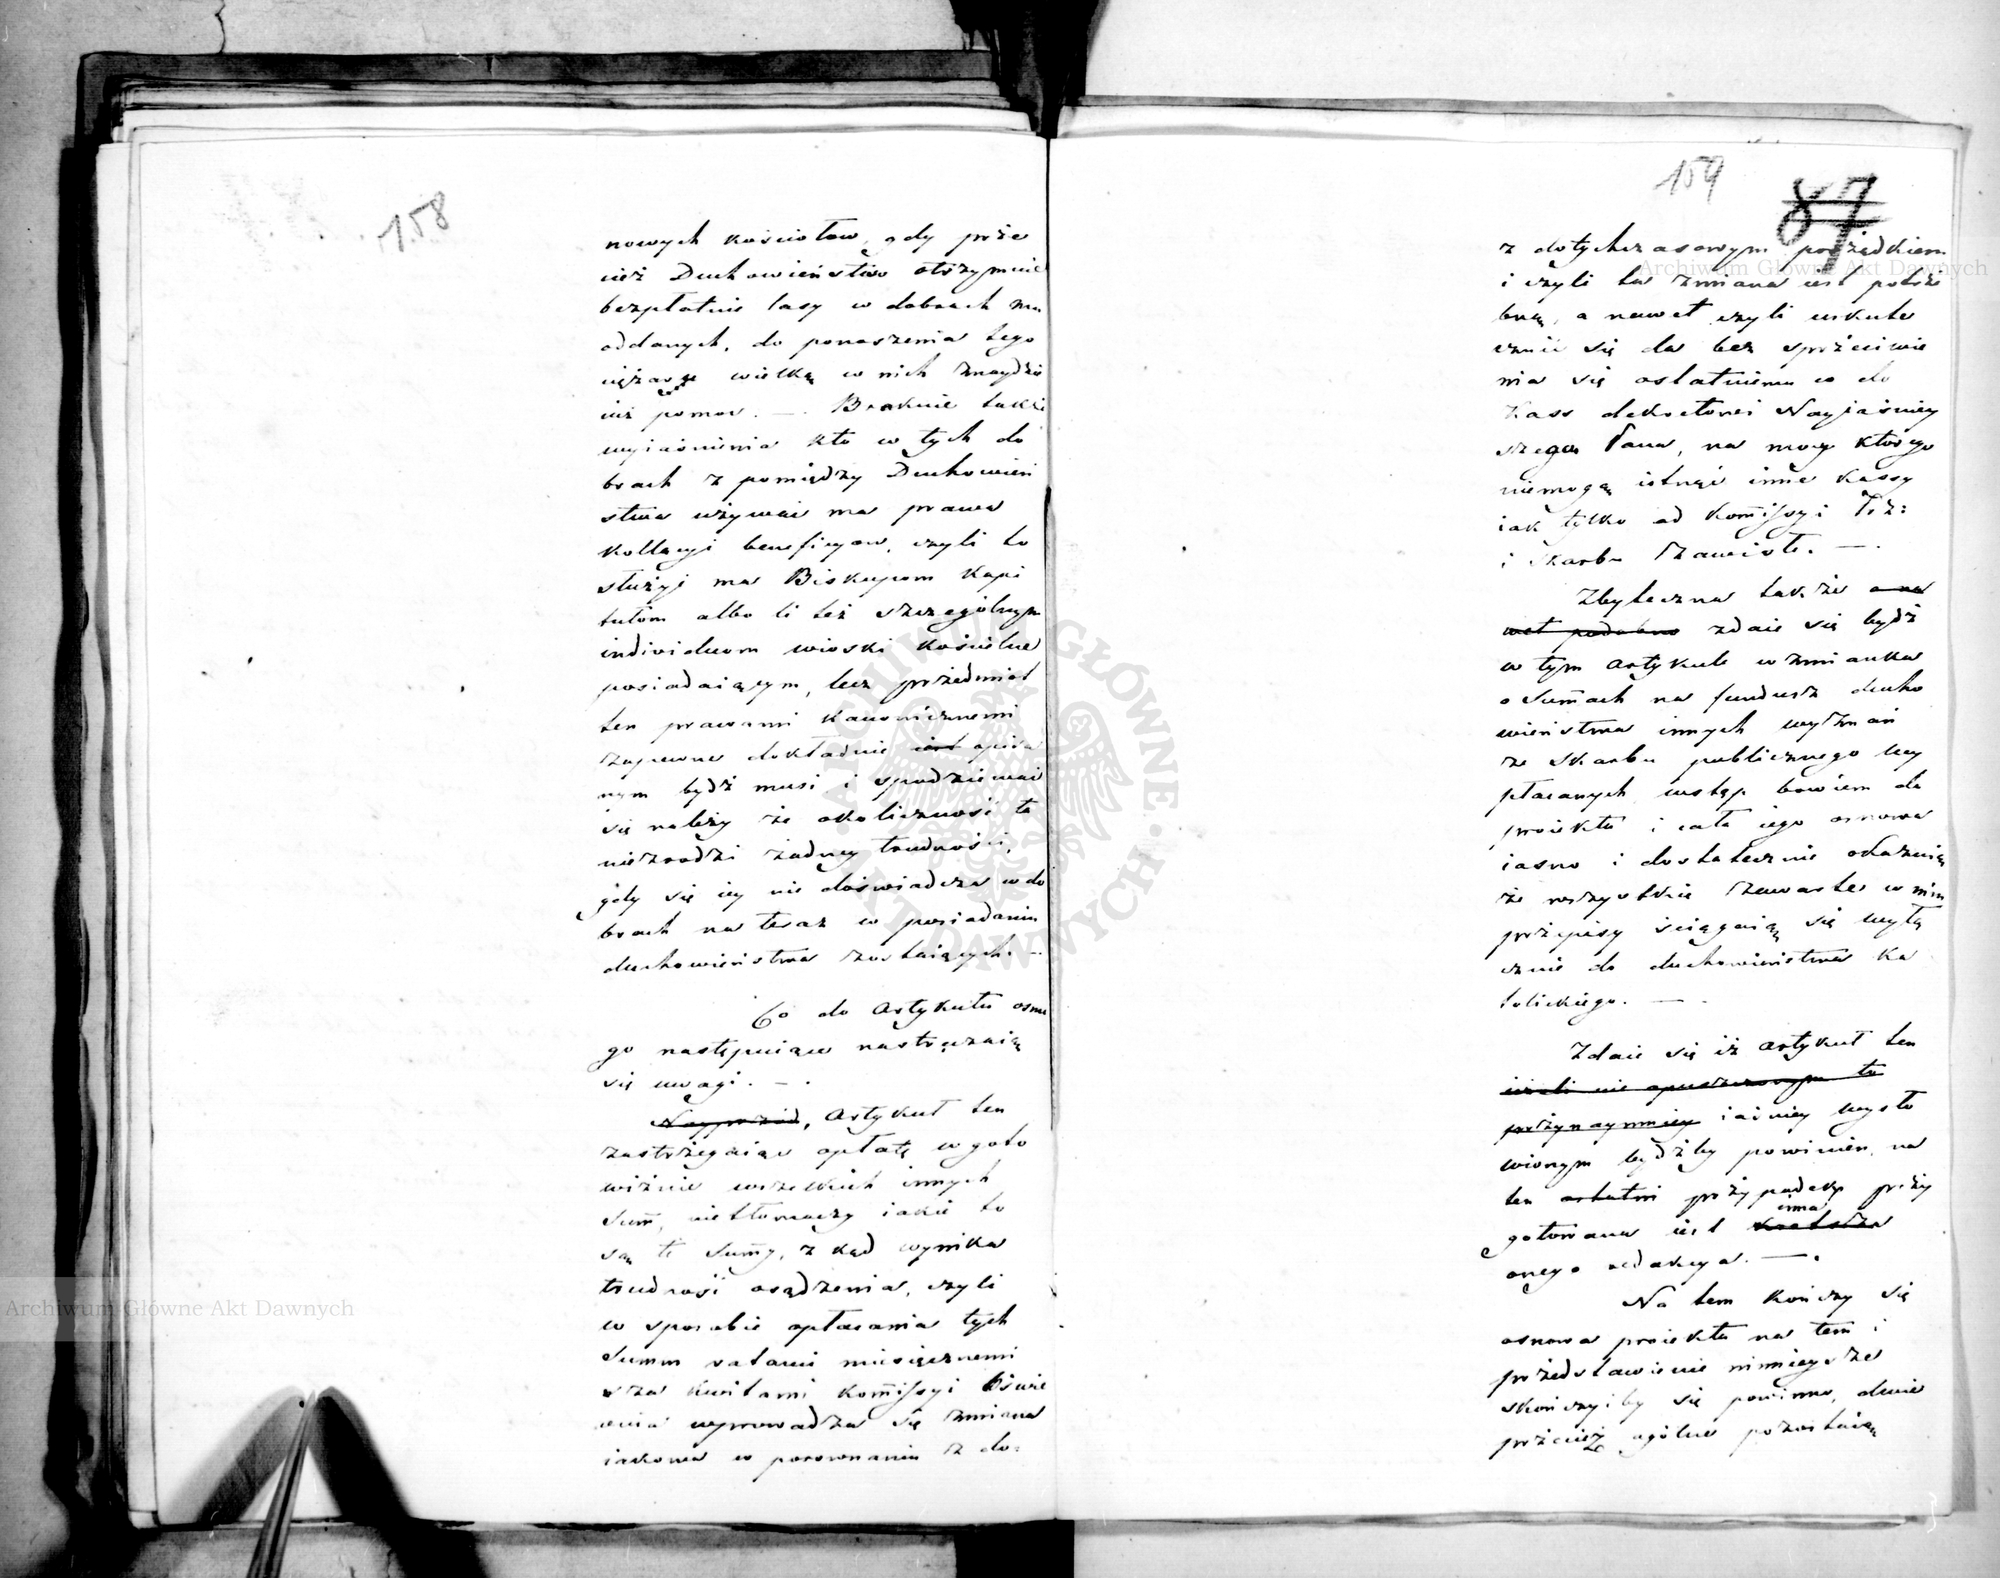 158
nowych kościołow, gdy prze
cież Duchowieństwo otrzymuie
bezpłatnie lasy w dobrach mu
oddanych, do ponoszenia tego
ciężaru wielką w nich znaydzie
iuż pomoc. — Braknie także
wyiaśnienia kto w tych do
brach z pomiędzy Duchowień
stwa używać ma prawa
kollacyi beneficyow, czyli to
służyć ma Biskupom Kapi
tułom albo li też szczególnym
individuom wioski kościelne
posiadaiącym, lecz przedmiot
ten prawami kanonicznemi
zapewne dokładnie iest opisa
nym bydź musi i spodziewać
się należy że okoliczność ta
niezrodzi żadney trudności,
gdy się iey nie doświadcza w do
brach na teraz w posiadaniu
duchowieństwa zostaiących. —
Co do Artykułu osme
go następuiące nastręczaią
się uwagi. —
Nayprzod, Artykuł ten
zastrzegaiąc opłatę w goto
wiźnie wszelkich innych
Summ, nietłomaczy iakie to
są te Summy, z kąd wynika
trudność osądzenia, czyli
w sposobie opłacania tych
Summ ratami miesięcznemi
za kwitami Kommissyi Oświe
cenia wprowadza się zmiana
iakowa w porownaniu z do-
159
87
z dotychczasowym porządkiem
i czyli ta zmiana iest potrze
bną, a nawet czyli uskute
cznić się da bez sprzeciwie
nia się ostatniemu co do
Kass dekretowi Nayiaśniey
szego Pana, na mocy którego
niemogą istnąć inne Kassy
iak tylko od Kommissyi Prz:
i Skarbu zawisłe. —
Zbyteczna także a na
wet podobno zdaie się bydź
w tym Artykule wzmianka
o Summach na fundusz ducho
wieństwa innych wyznań
ze Skarbu publicznego wy
płacanych wstęp bowiem do
proiektu i cała iego osnowa
iasno i dostatecznie okazuią
że wszystkie zawarte w nim
przepisy ściągaią się wyłą
cznie do duchowieństwa Ka
tolickiego. —
Zdaie się iż Artykuł ten
ieżeli nie opuszczonym to
przynaymniey iaśniey wysło
wionym bydźby powinien, na
ten ostatni przypadek przy
gotowana iest krotsza
inna
onego redakcya. —
Na tem kończy się
osnowa proiektu na tem i
przedstawienie ninieysze
skończyćby się powinno, dwie
przecież ogólne pozostaią
Archiwum Główne Akt Dawnych
Archiwum Główne Akt Dawnych
ARCHIWUM GŁÓWNE AKT DAWNYCH